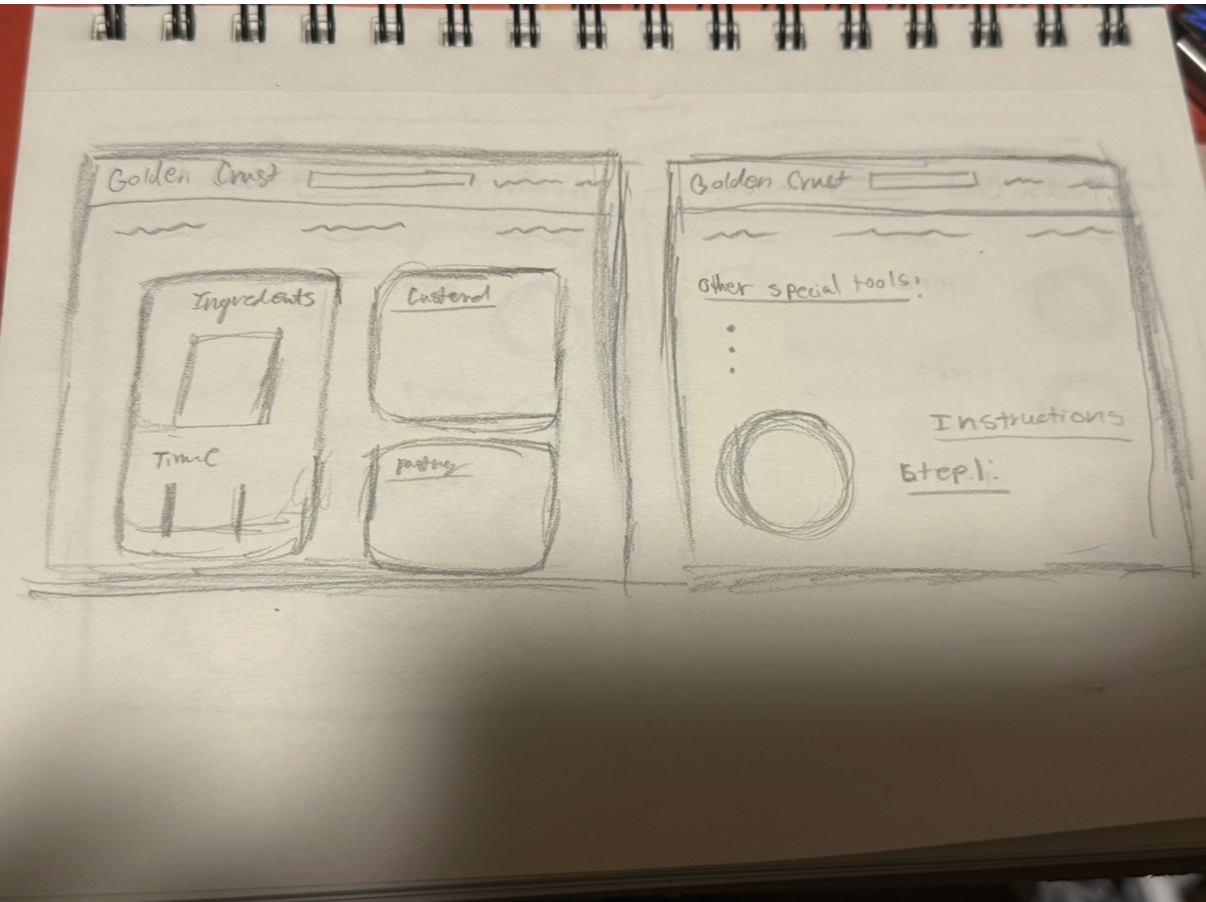 Golden Crust
Ingredents
Time
Custard
pastry
Golden Crust
other special tools:
Instructions
Step 1: